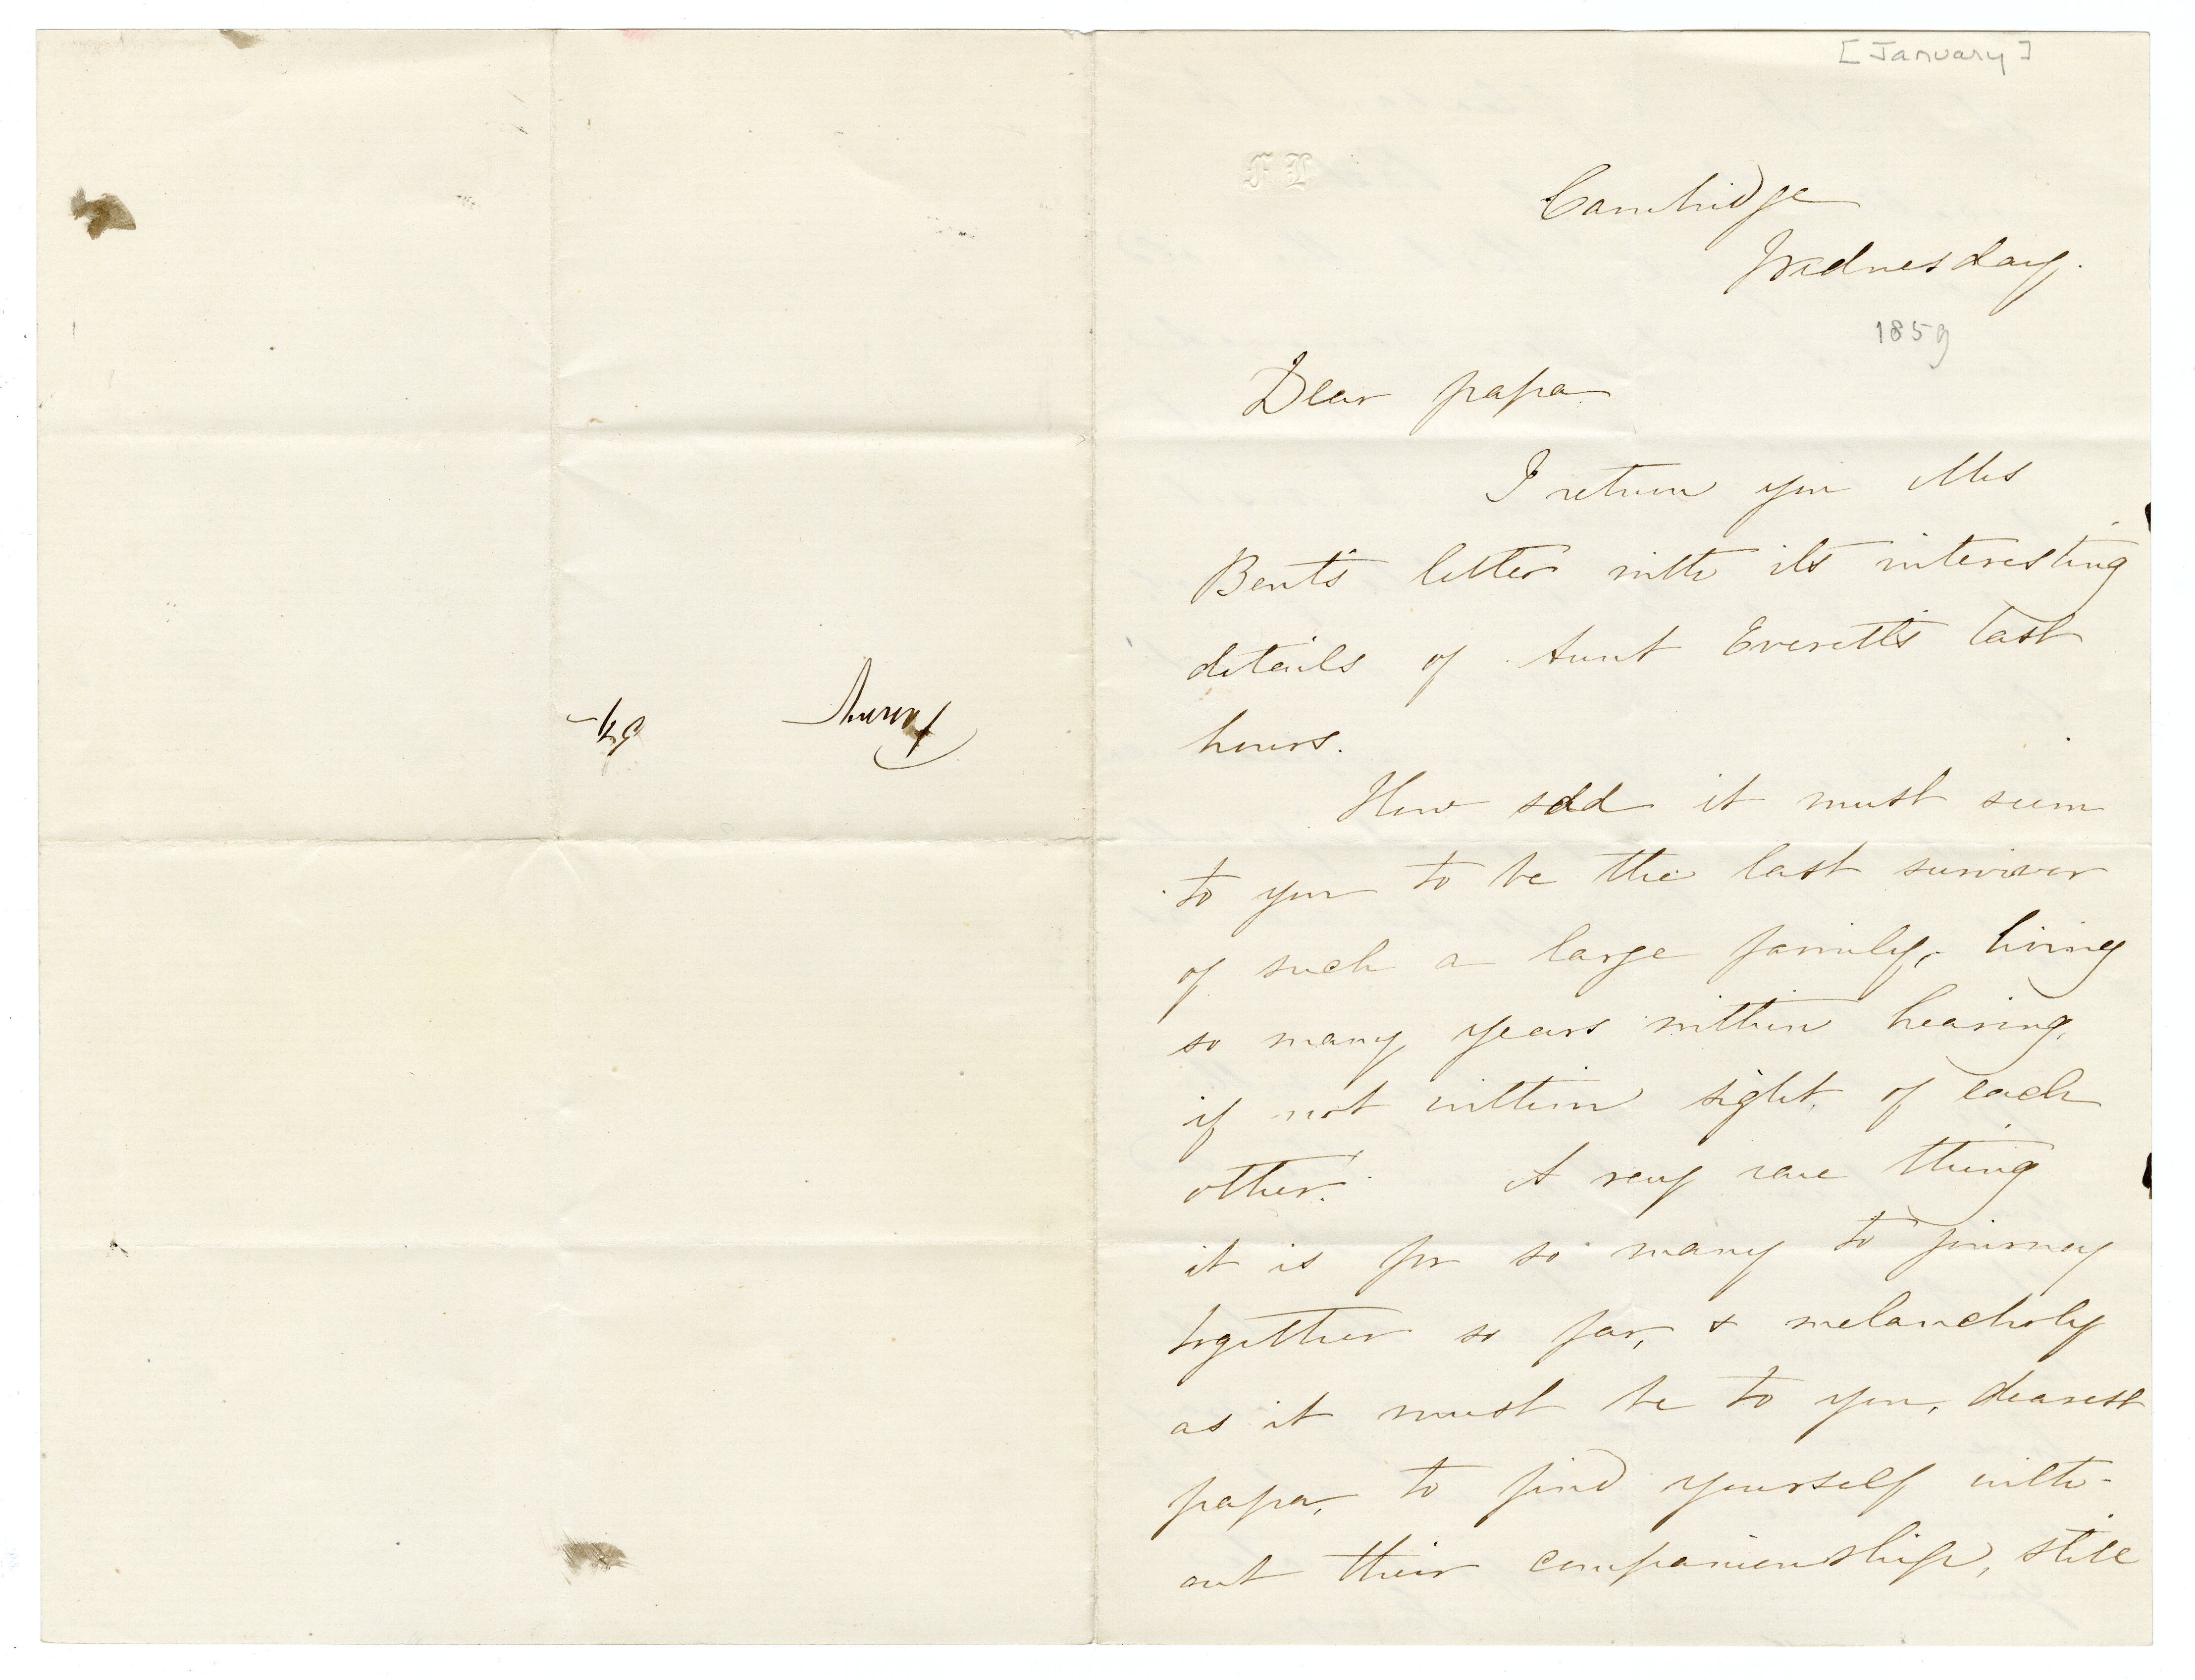 [January]
F L
Cambridge
Wednesday.
1859
Dear papa
I return you Mrs
Bent's letter with its interesting
details of Aunt Everett's last
hours.
How sad it must seem
to you to be the last survivor
of such a large family, living
so many years within hearing,
if not within sight, of each
other. A very rare thing
it is for so many to journey
together so far, & melancholy
as it must be to you, dearest
papa, to find yourself with-
out their companionship, still
Fanny